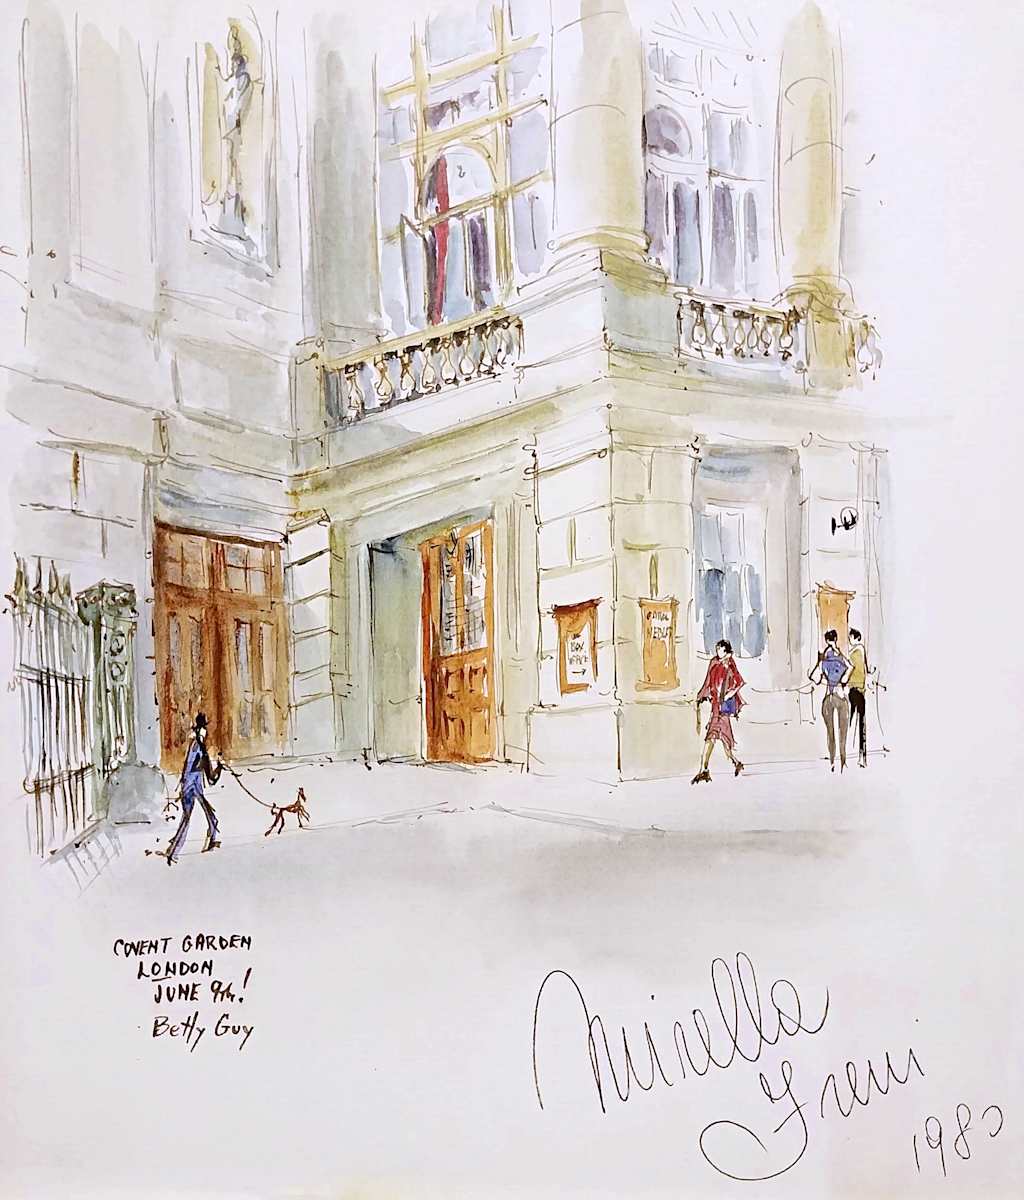 BOX
OFFICE
COVENT GARDEN
LONDON
JUNE 9th!
Betty Guy
Mirella
Freni
1980